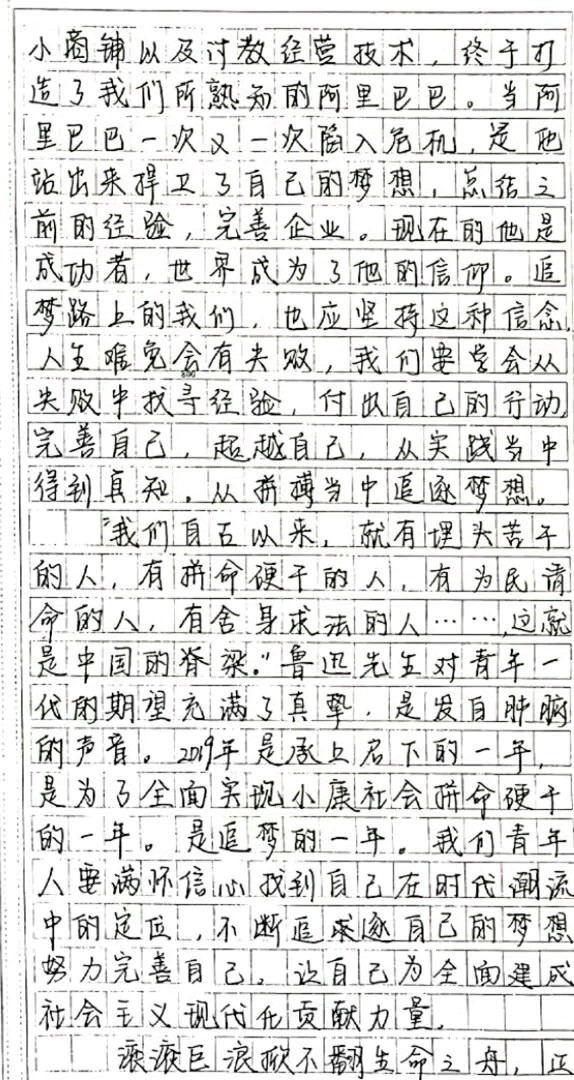 小商铺以及讨教经营技术，终于打
造了我们所熟知的阿里巴巴。当阿
里巴巴一次又一次陷入危机，是他
站出来捍卫了自己的梦想，总结之
前的经验，完善企业。现在的他是
成功者，世界成为了他的信仰。追
梦路上的我们，也应坚持这种信念，
人生难免会有失败，我们要学会从
失败中找寻经验，付出自己的行动，
完善自己，超越自己，从实践当中
得到真知。从拼搏当中追逐梦想。
“我们自古以来，就有埋头苦干
的人，有拼命硬干的人，有为民请
命的人，有舍身求法的人……，这就
是中国的脊梁。”鲁迅先生对青年一
代的期望充满了真挚，是发自肺腑
的声音。2019年是承上启下的一年，
是为了全面实现小康社会拼命硬干
的一年。是追梦的一年。我们青年
人要满怀信心找到自己在时代潮流
中的定位，不断追求逐自己的梦想
努力完善自己。让自己为全面建成
社会主义现代化贡献力量。
滚滚巨浪掀不翻生命之舟，正